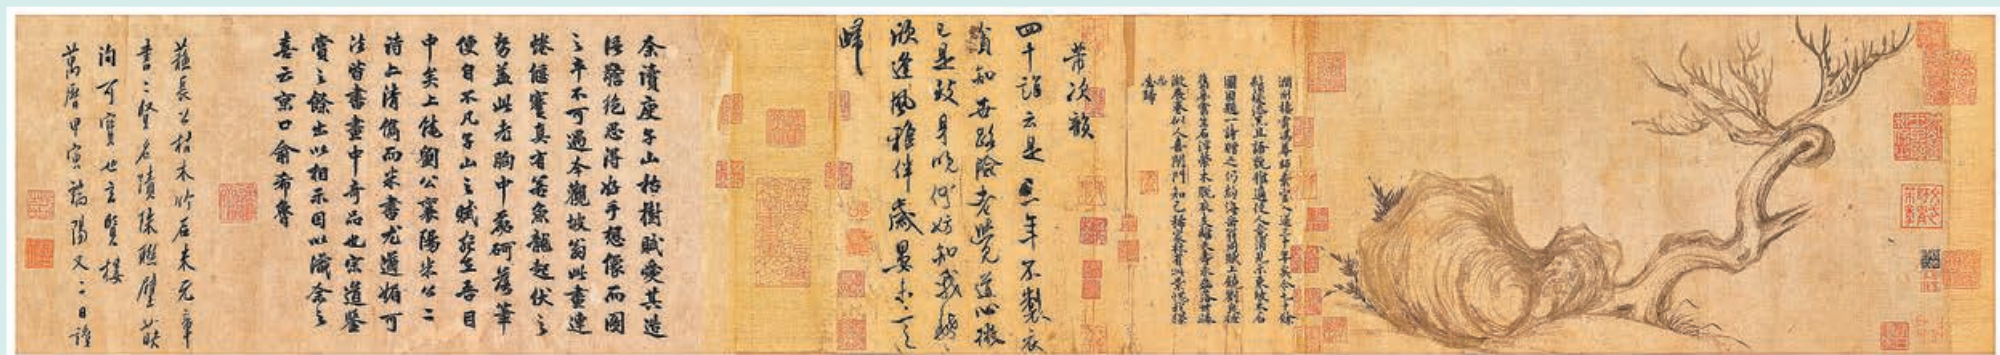 潤州棲雲馮尊師棄官入道三十年矣今七十餘
鬚髮漆黑且語貌雅適使人意消見示東坡木石
圖因題一詩贈之仍約海岳翁同賦上饒劉良佐
舊夢雲生石浮榮木脫衣支離天壽永磊落世緣
微展卷似人喜閉門知己稀家林有此景愧我獨
忘歸
芾次韻
四十誰云是三年不製衣
貧知世路險老覺道心微
已是致身晚何妨知我稀
欣逢風雅伴歲晏未言
歸
余讀庾子山枯樹賦愛其造
語絕思得好手想像而圖
之卒不可遇今觀坡翁此畫連
蜷偃蹇真有若魚龍起伏之
勢蓋此老胸中磊砢落筆
便自不凡子山之賦宛在吾目
中矣上饒劉公襄陽米公二
詩上清儁而米書尤遒媚可
法皆書畫中奇品也宗道鑒
賞之餘出以相示因以識余之
喜云京口俞希魯
蘇長公枯木竹石米元章
書二賢名蹟珠聯璧
洵可寶也賢樓
萬曆甲寅端陽又二日